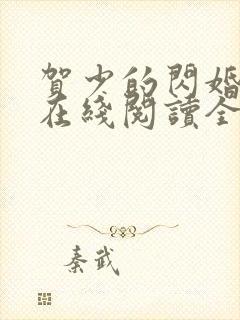 賀少的閃婚
在綫閱讀全
秦武